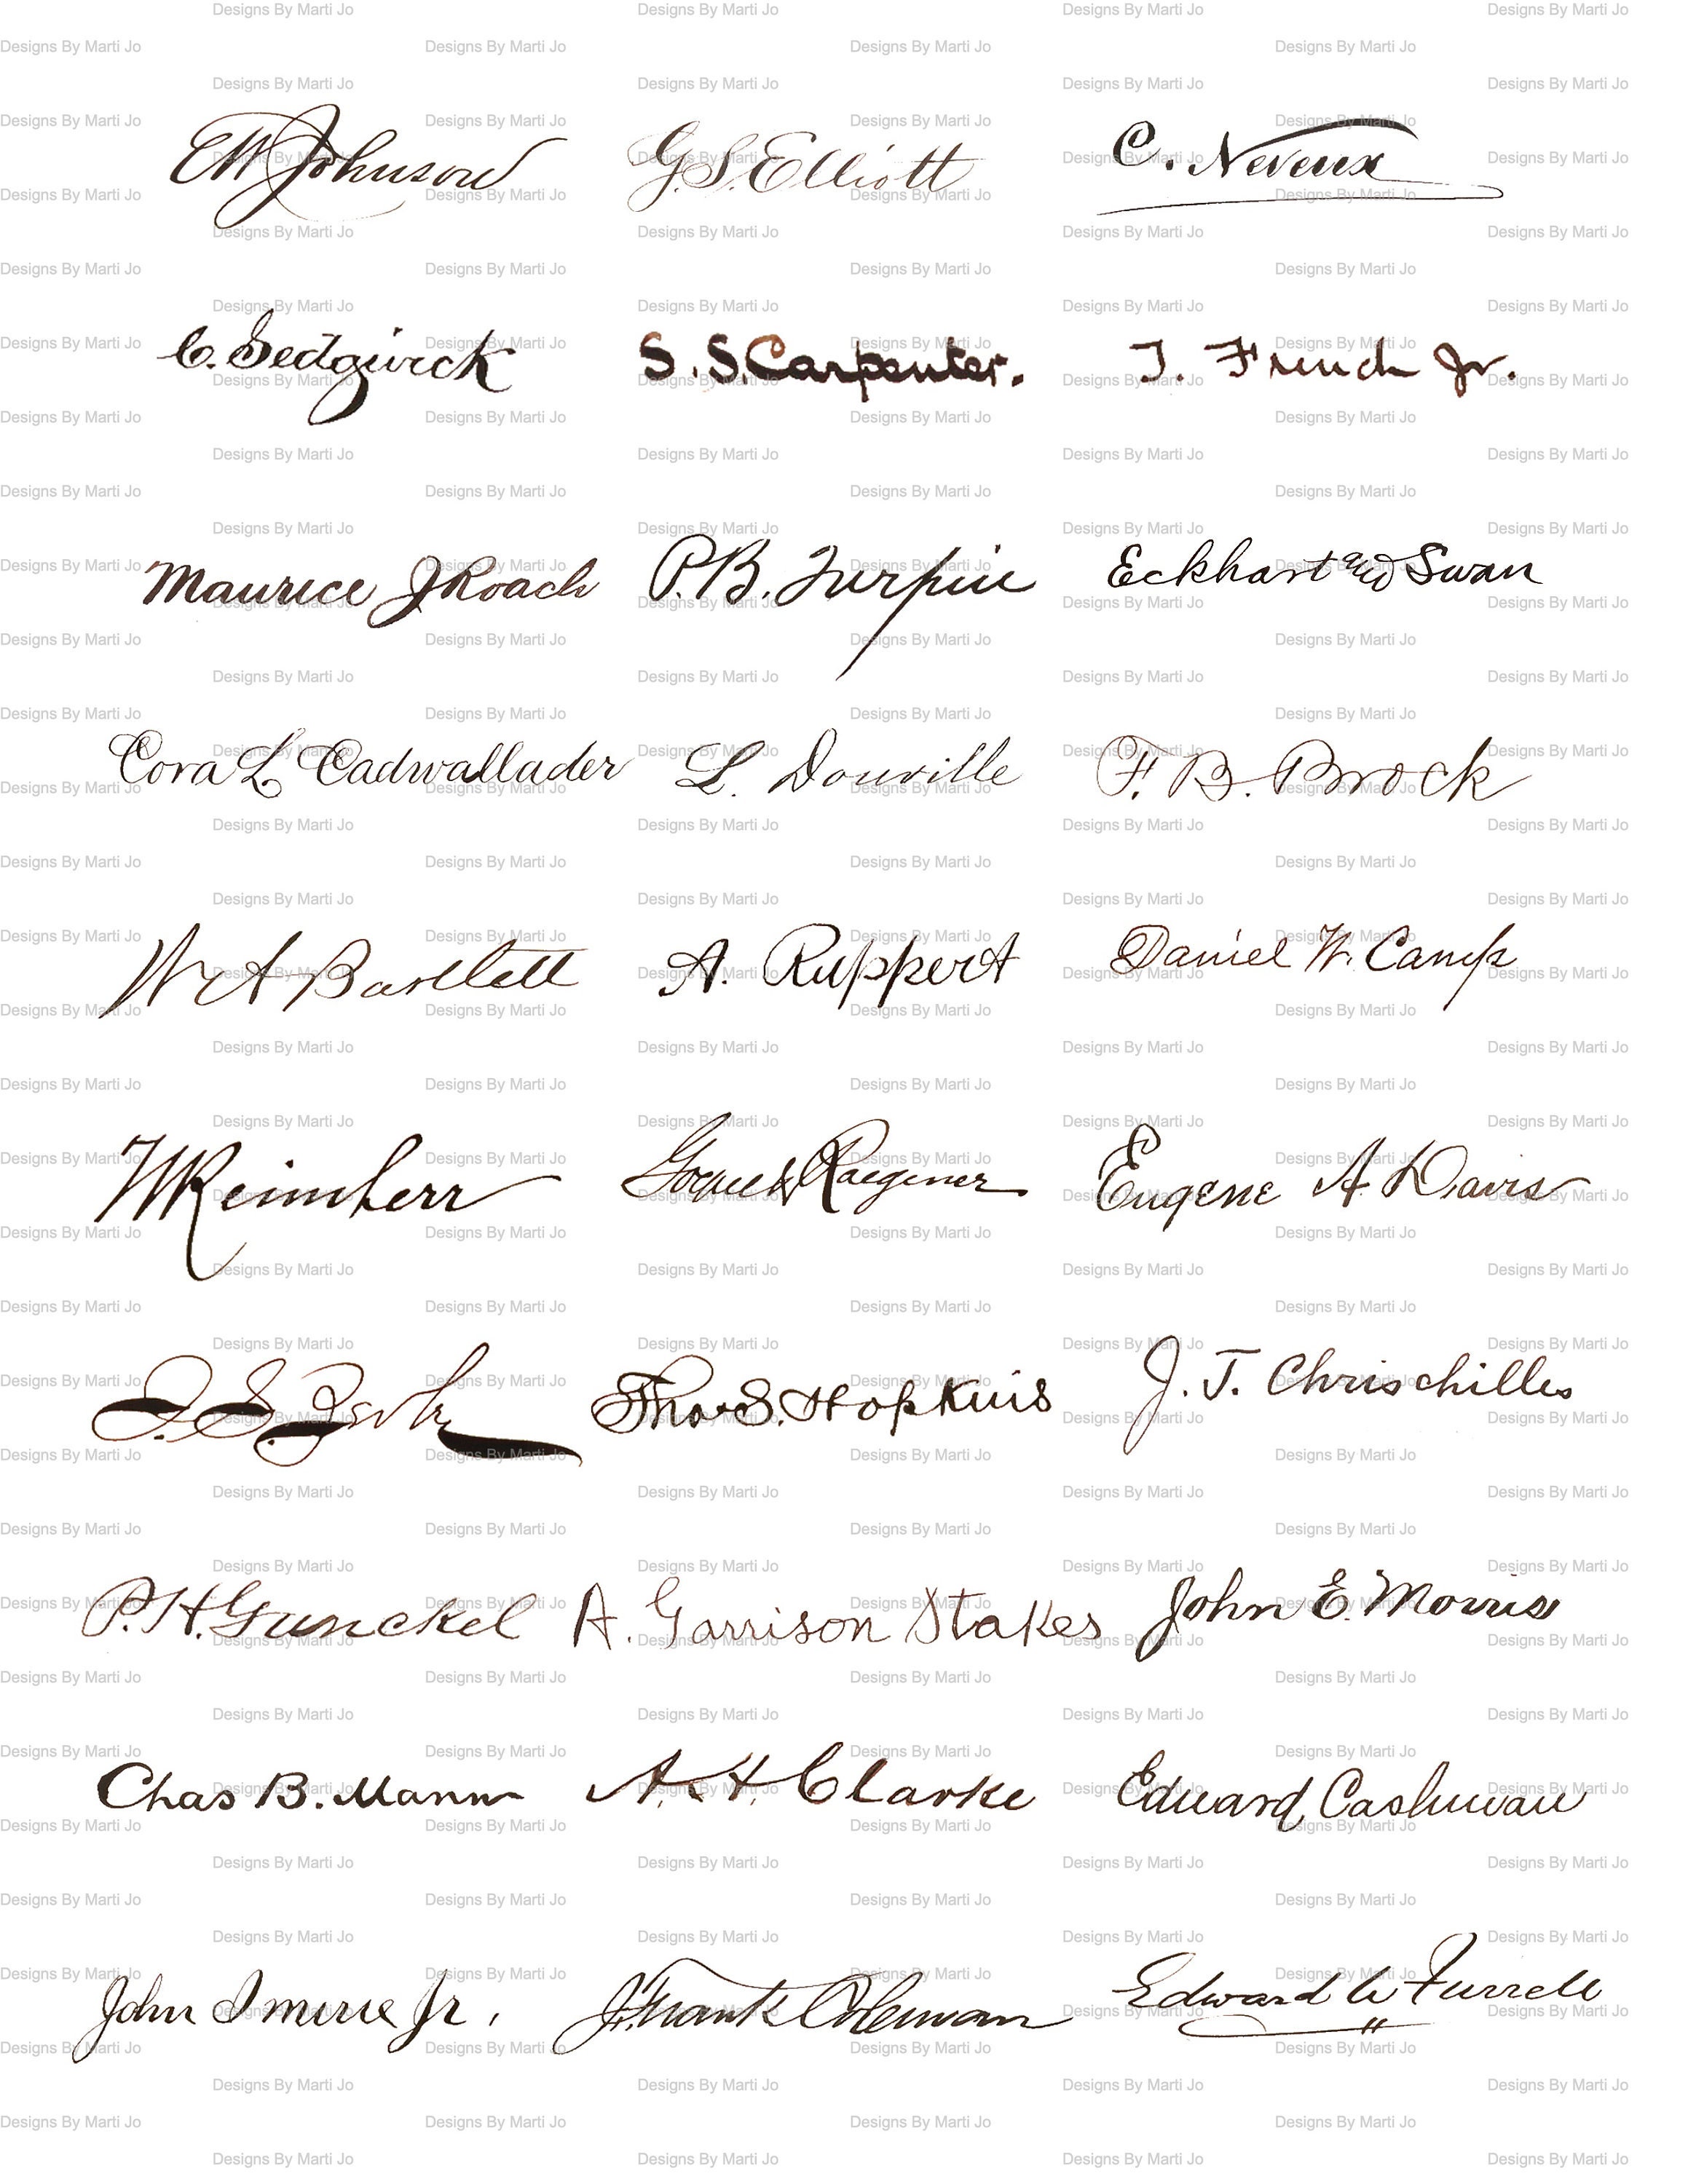 EW Johnson G.S. Elliott C. Neveux
C. Sedgwick S. S. Carpenter. T. French Jr.
Maurice J Roach P.B. Turpin Eckhart and Swan
Cora L. Cadwallader L. Douville F. B. Brock
W A Bartlett A. Ruppert Daniel W. Camp
Reimherr Raegener Eugene A. Davis
Thos S. Hopkins J. T. Chrischilles
P. H. Gunckel A. Garrison Stakes John E. Morris
Chas B. Mann A. H. Clarke Edward Cashman
John Imrie Jr. J. Frank Coleman Edward W Furrell
Designs By Marti Jo